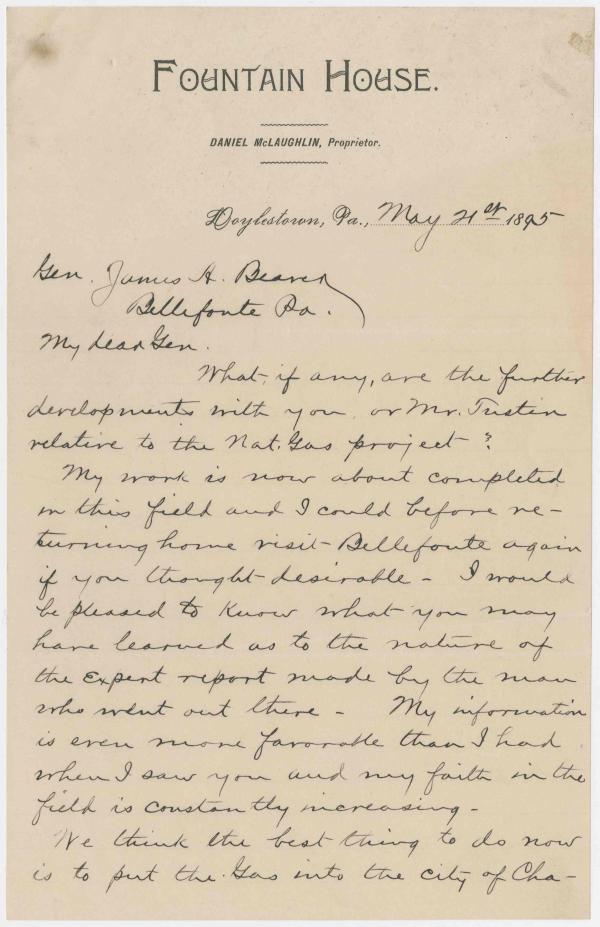 FOUNTAIN HOUSE.
DANIEL McLAUGHLIN, Proprietor.
Doylestown, Pa., May 21st 1895
Gen. James A. Beaver
Bellefonte Pa.
My dear Gen.
What, if any, are the further
developments with you, or Mr. Tustin
relative to the Nat. Gas project?
My work is now about completed
in this field and I could before re-
turning home visit Bellefonte again
if you thought desirable - I would
be pleased to know what you may
have learned as to the nature of
the Expert report made by the man
who went out there - My information
is even more favorable than I had
when I saw you and my faith in the
field is constantly increasing -
We think the best thing to do now
is to put the Gas into the city of Cha-